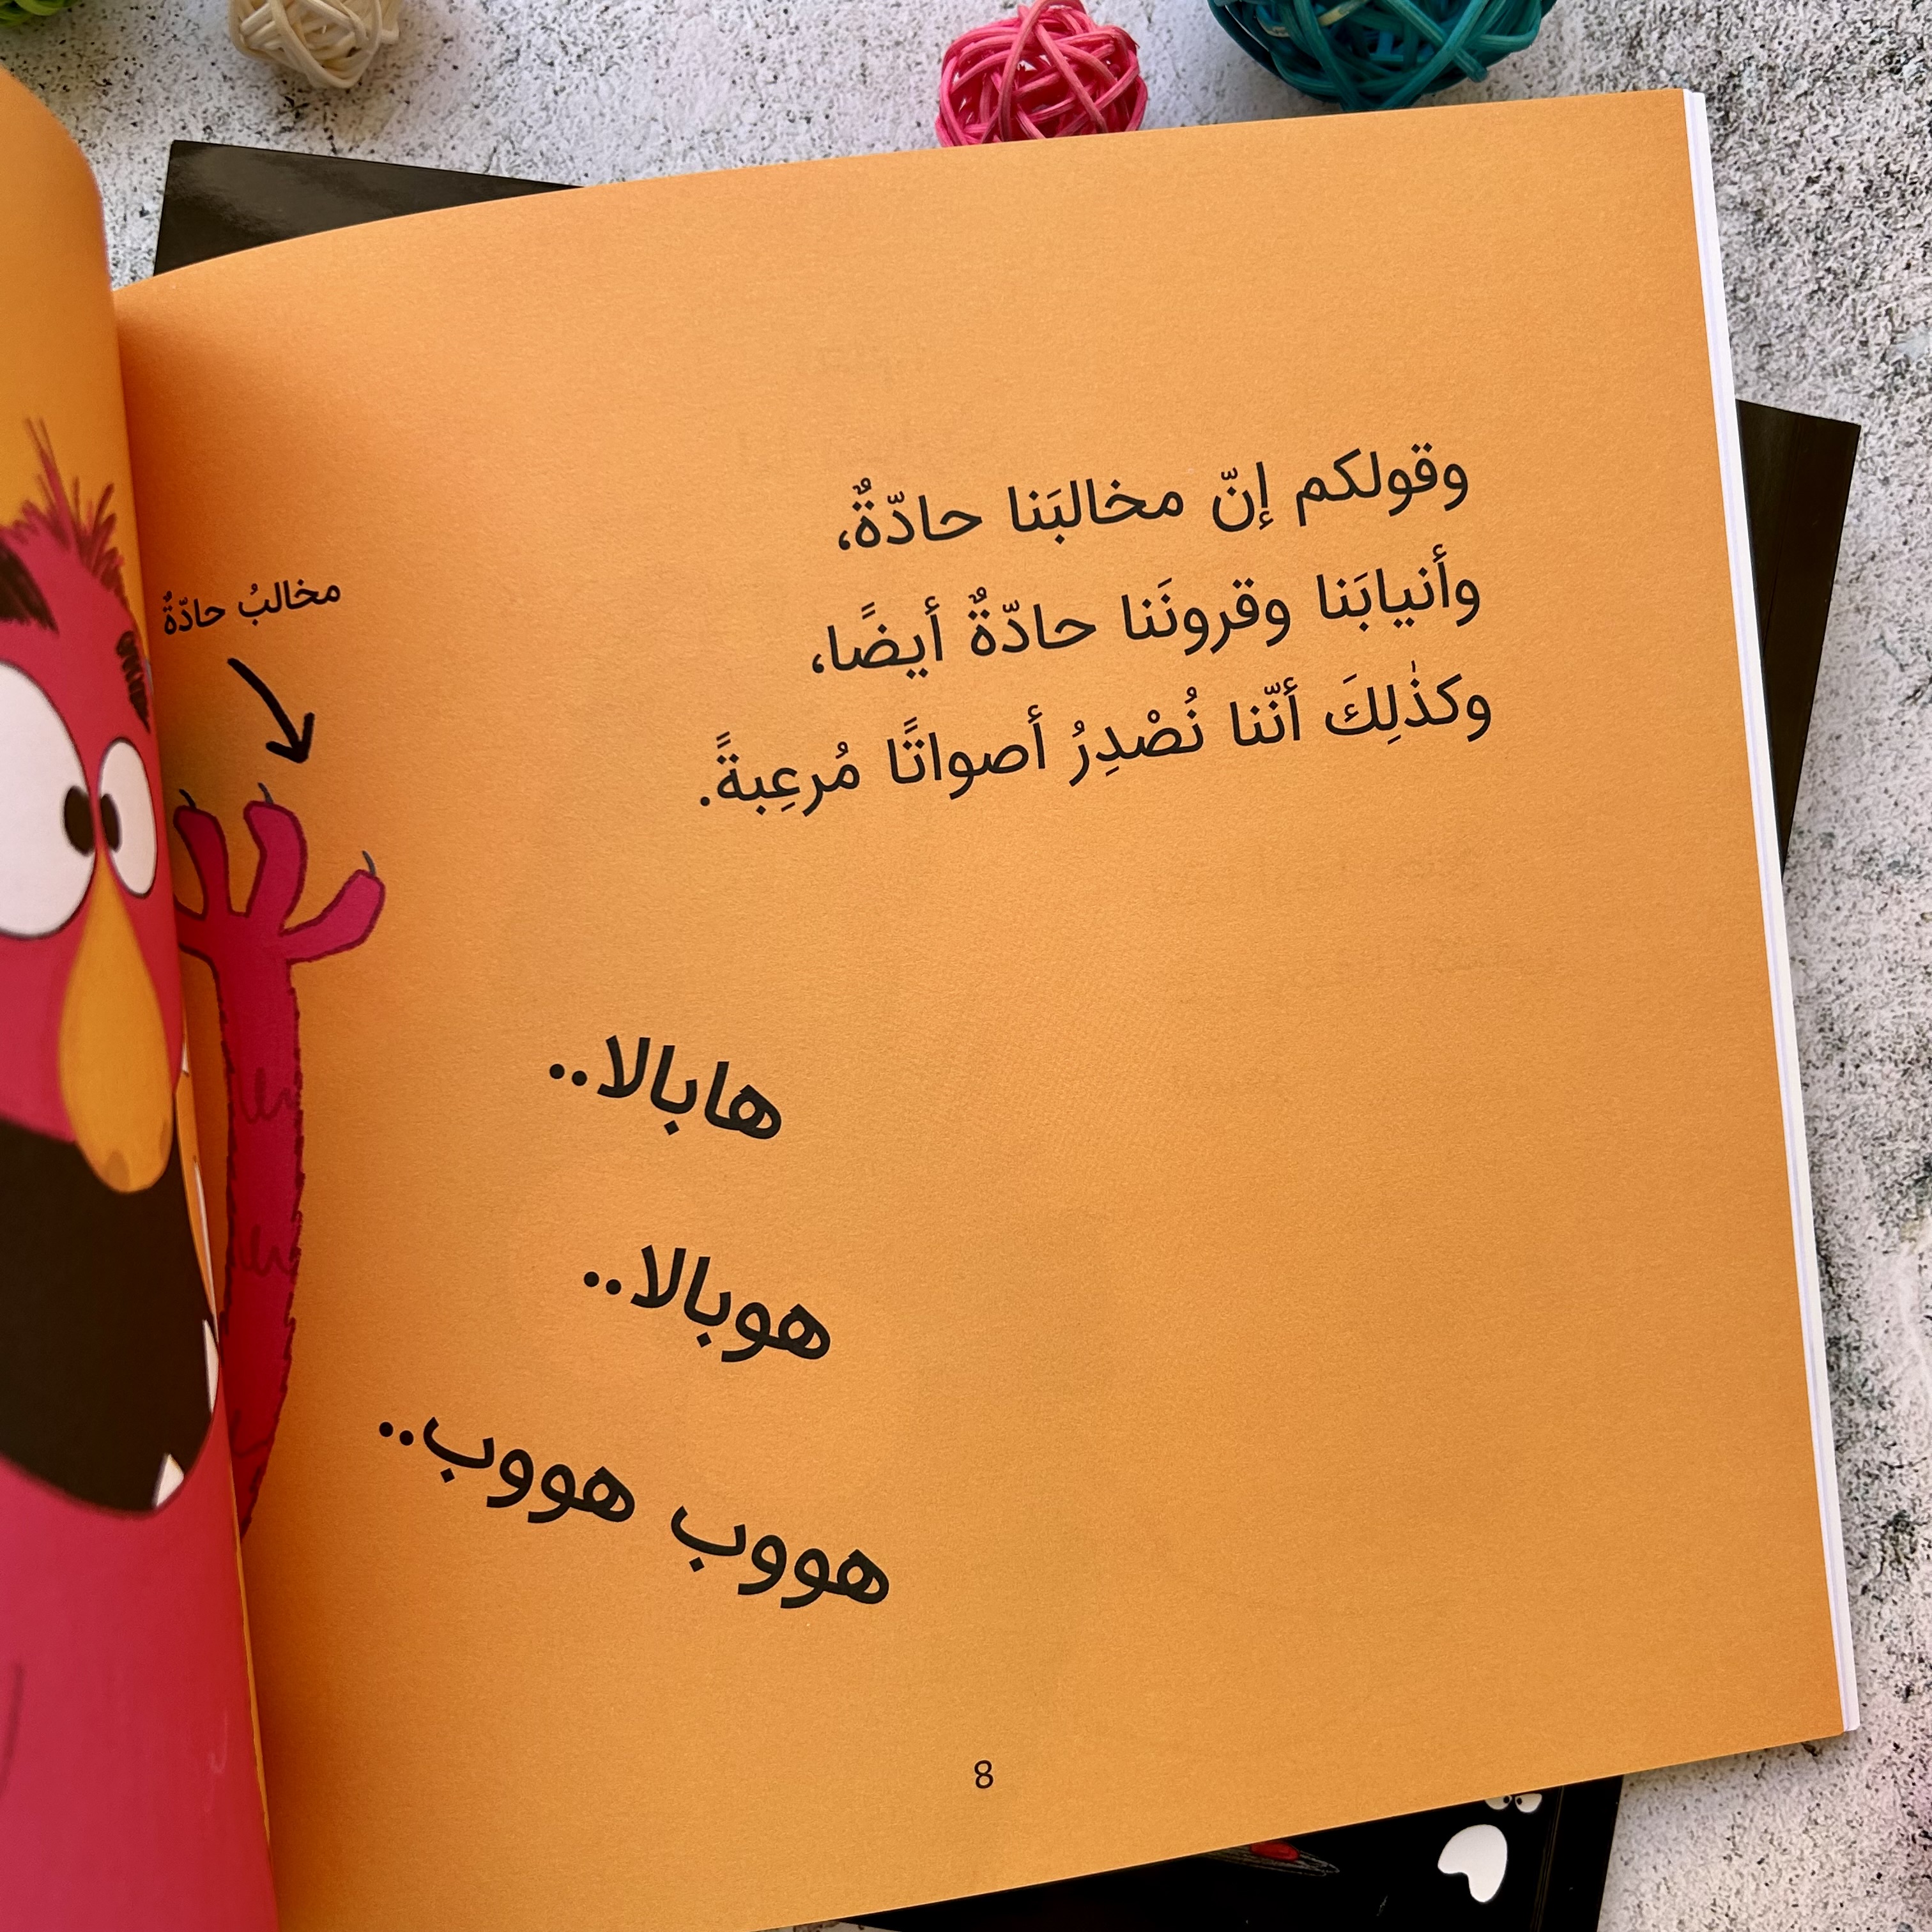 وقولكم إنّ مخالبَنا حادّةٌ،
وأنيابَنا وقرونَنا حادّةٌ أيضًا،
وكذٰلِكَ أنّنا نُصْدِرُ أصواتًا مُرعِبةً.
مخالبُ حادّةٌ
هابالا..
هوبالا..
هووب هووب..
8